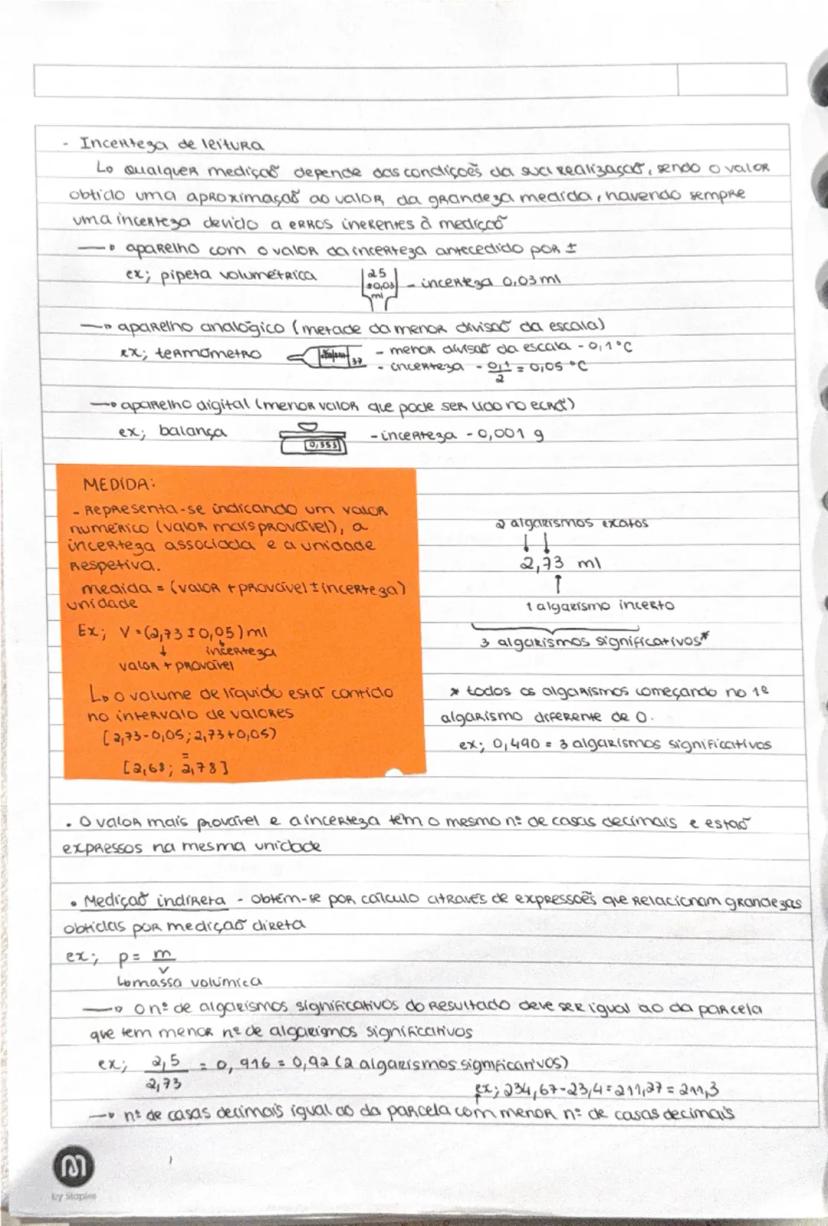 - Incerteza de leitura
↳ Qualquer medição depende das condições da sua realização, sendo o valor
obtido uma aproximação ao valor da grandeza medida, havendo sempre
uma incerteza devido a erros inerentes à medição
→ aparelho com o valor da incerteza antecedido por ±
ex; pipeta volumétrica
25
±0,03
ml
- incerteza 0,03 ml
→ aparelho analógico (metade da menor divisão da escala)
ex; termómetro
37
- menor divisão da escala - 0,1 °C
- incerteza - 0,1/2 = 0,05 °C
→ aparelho digital (menor valor que pode ser lido no ecrã)
ex; balança
0,353
- incerteza - 0,001 g
MEDIDA:
- Representa-se indicando um valor
numérico (valor mais provável), a
incerteza associada e a unidade
respetiva.
medida = (valor + provável ± incerteza)
unidade
Ex; V = (2,73 ± 0,05) ml
↓ incerteza
valor + provável
↳ o volume de líquido está contido
no intervalo de valores
[2,73-0,05; 2,73+0,05)
=
[2,68; 2,78]
2 algarismos exatos
↓ ↓
2,73 ml
↑
1 algarismo incerto
3 algarismos significativos*
* todos os algarismos começando no 1º
algarismo diferente de 0.
ex; 0,490 = 3 algarismos significativos
• O valor mais provável e a incerteza têm o mesmo nº de casas decimais e estão
expressos na mesma unidade
• Medição indireta - obtém-se por cálculo através de expressões que relacionam grandezas
obtidas por medição direta
ex; p = m/v
↳ massa volúmica
→ o nº de algarismos significativos do resultado deve ser igual ao da parcela
que tem menor nº de algarismos significativos
ex; 2,5/2,73 = 0,916 = 0,92 (2 algarismos significativos)
ex; 234,67-23,4=211,27=211,3
→ nº de casas decimais igual ao da parcela com menor nº de casas decimais
by Staples